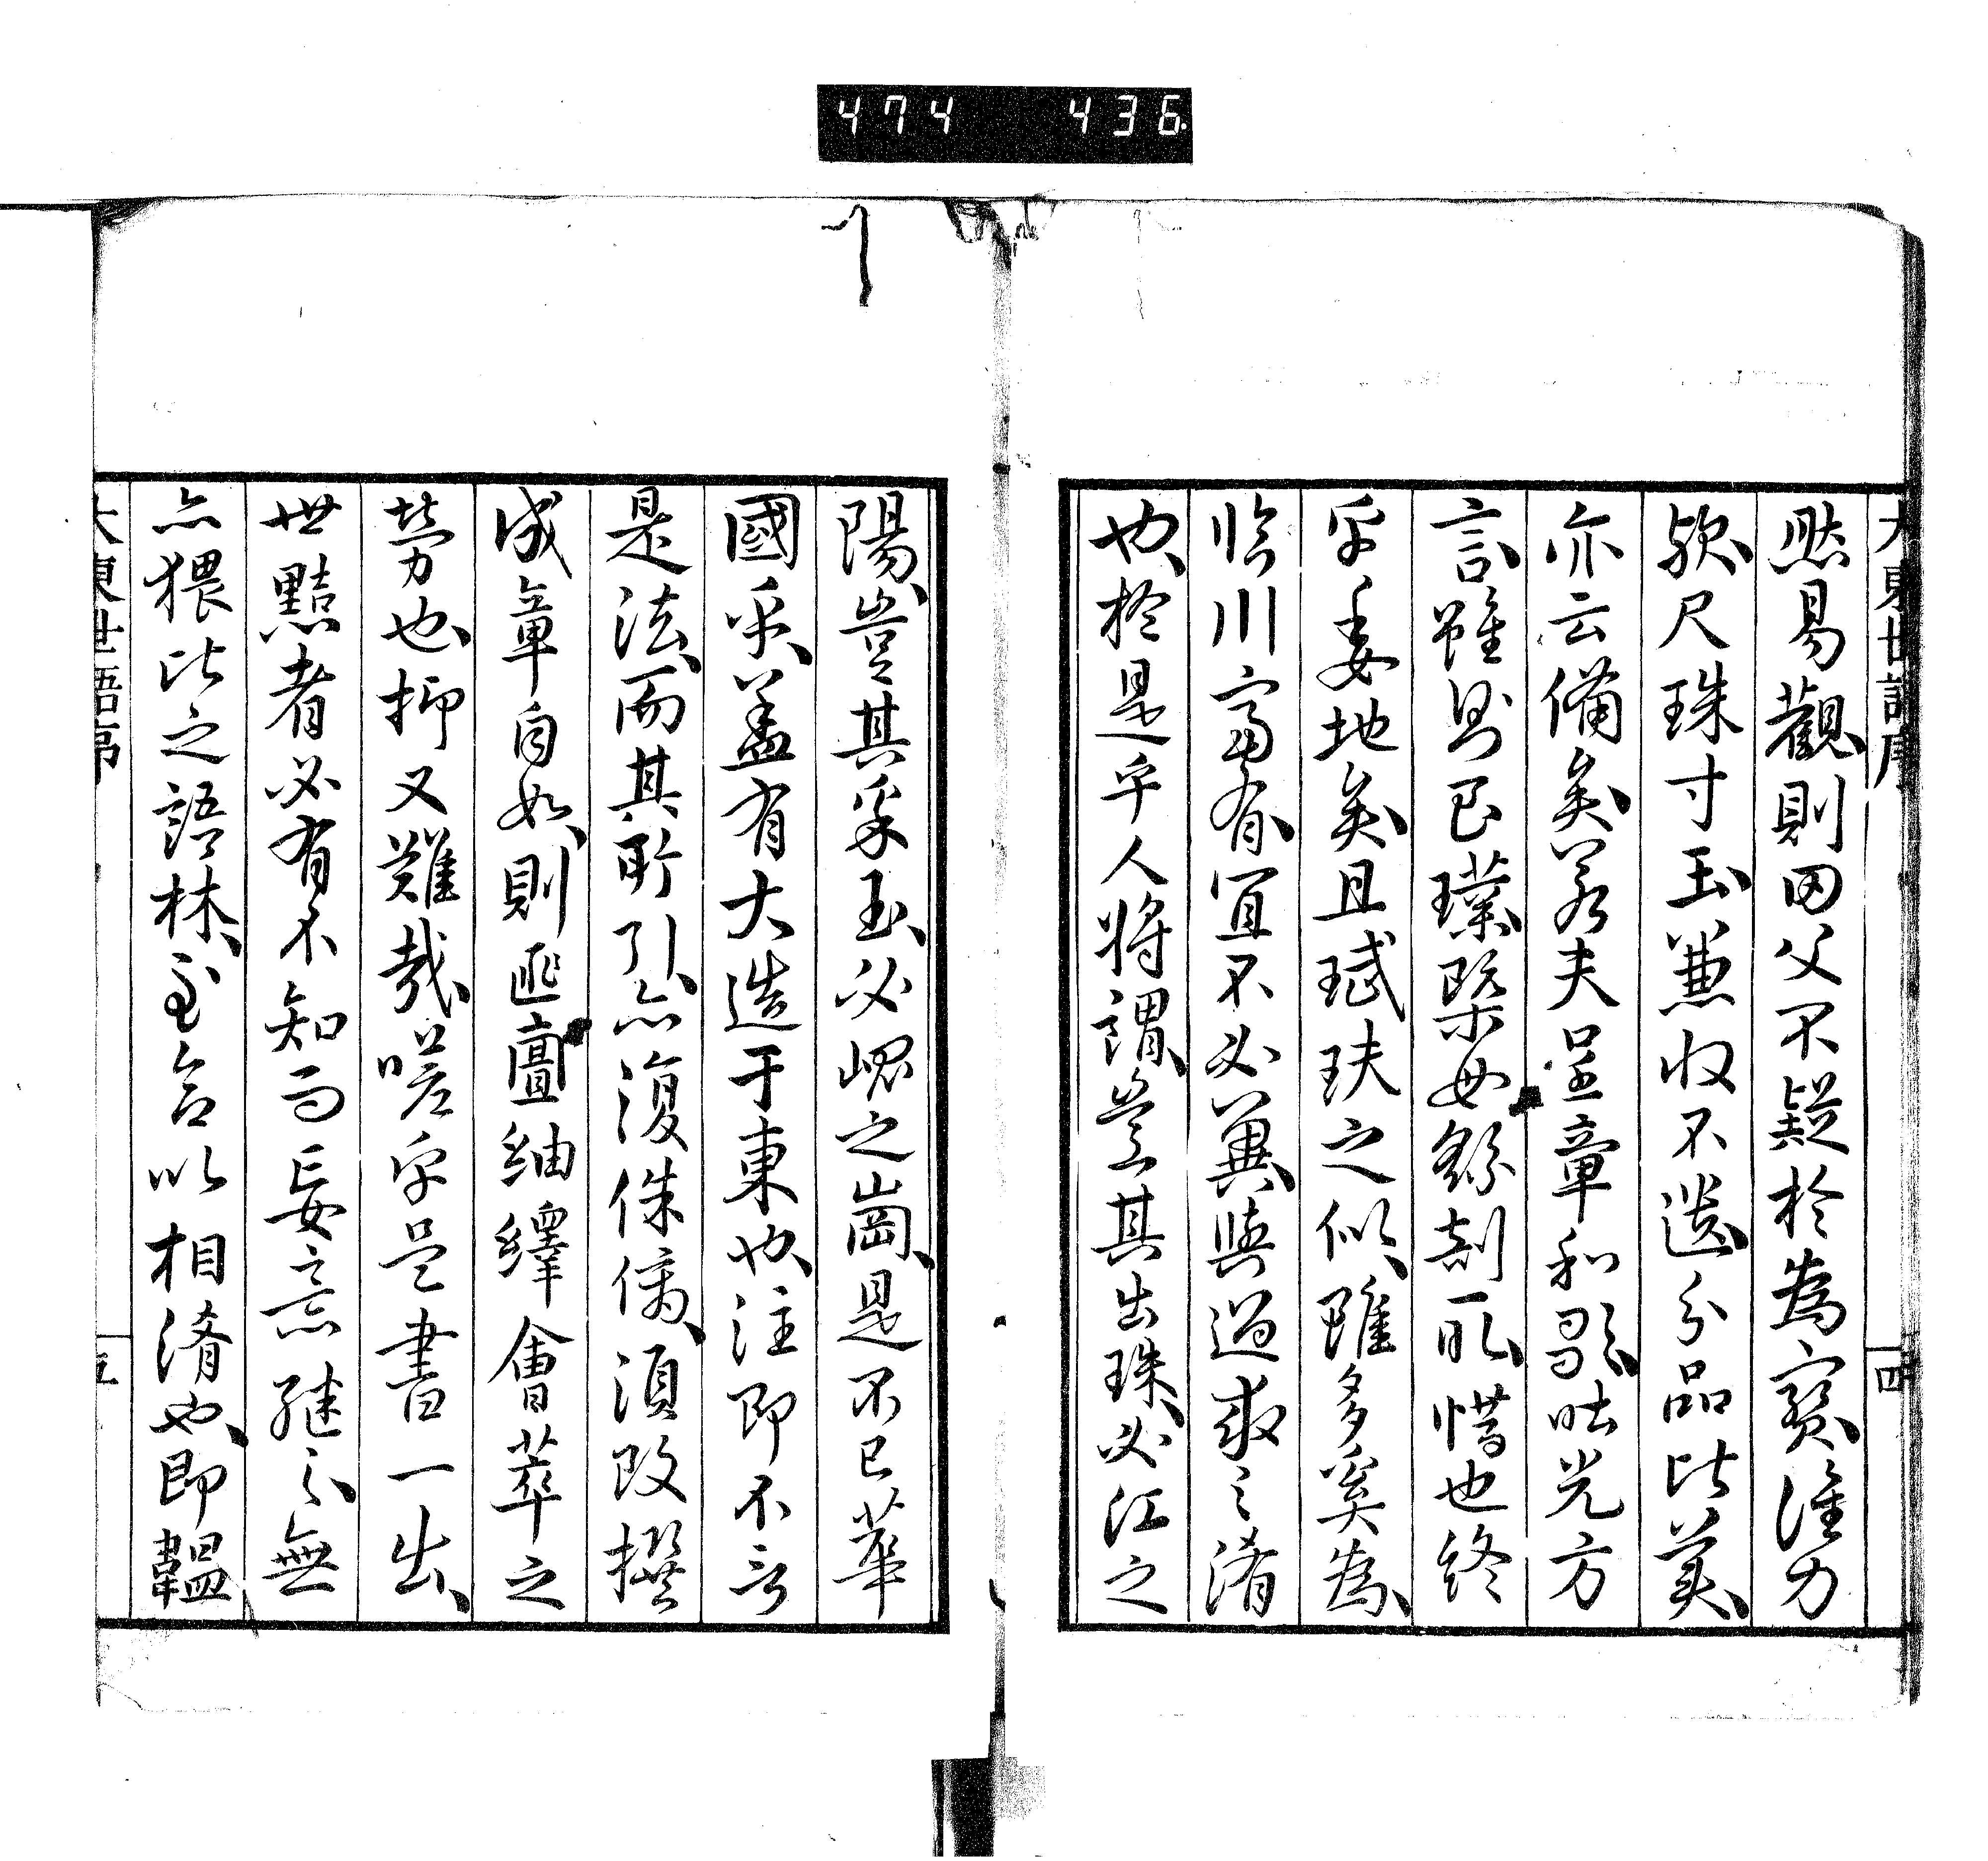 474 436
大東世語序
四
然易觀則田父不疑於為寶誰力
歟尺珠寸玉兼收不遺分品比美
亦云備矣若夫呈章和點吐光方
言雖則良璞槩毋緣剖瓜惜也終
乎委地矣且珷玞之似雖多奚為
臨川富有宜不必兼與過求之濟
也於是乎人將謂豈其出珠必江之
陽豈其采玉必崐之崗是不已華
國乎蓋有大造于東也注即不言
是法而其所引亦復侏僑須改撰
成章自如則匪啻紬繹會萃之
勞也抑又難哉嗟乎是書一出
世黠者必有不知而妄意繼之無
亦猥比之語林至令以相淆也即韞
大東世語序
五